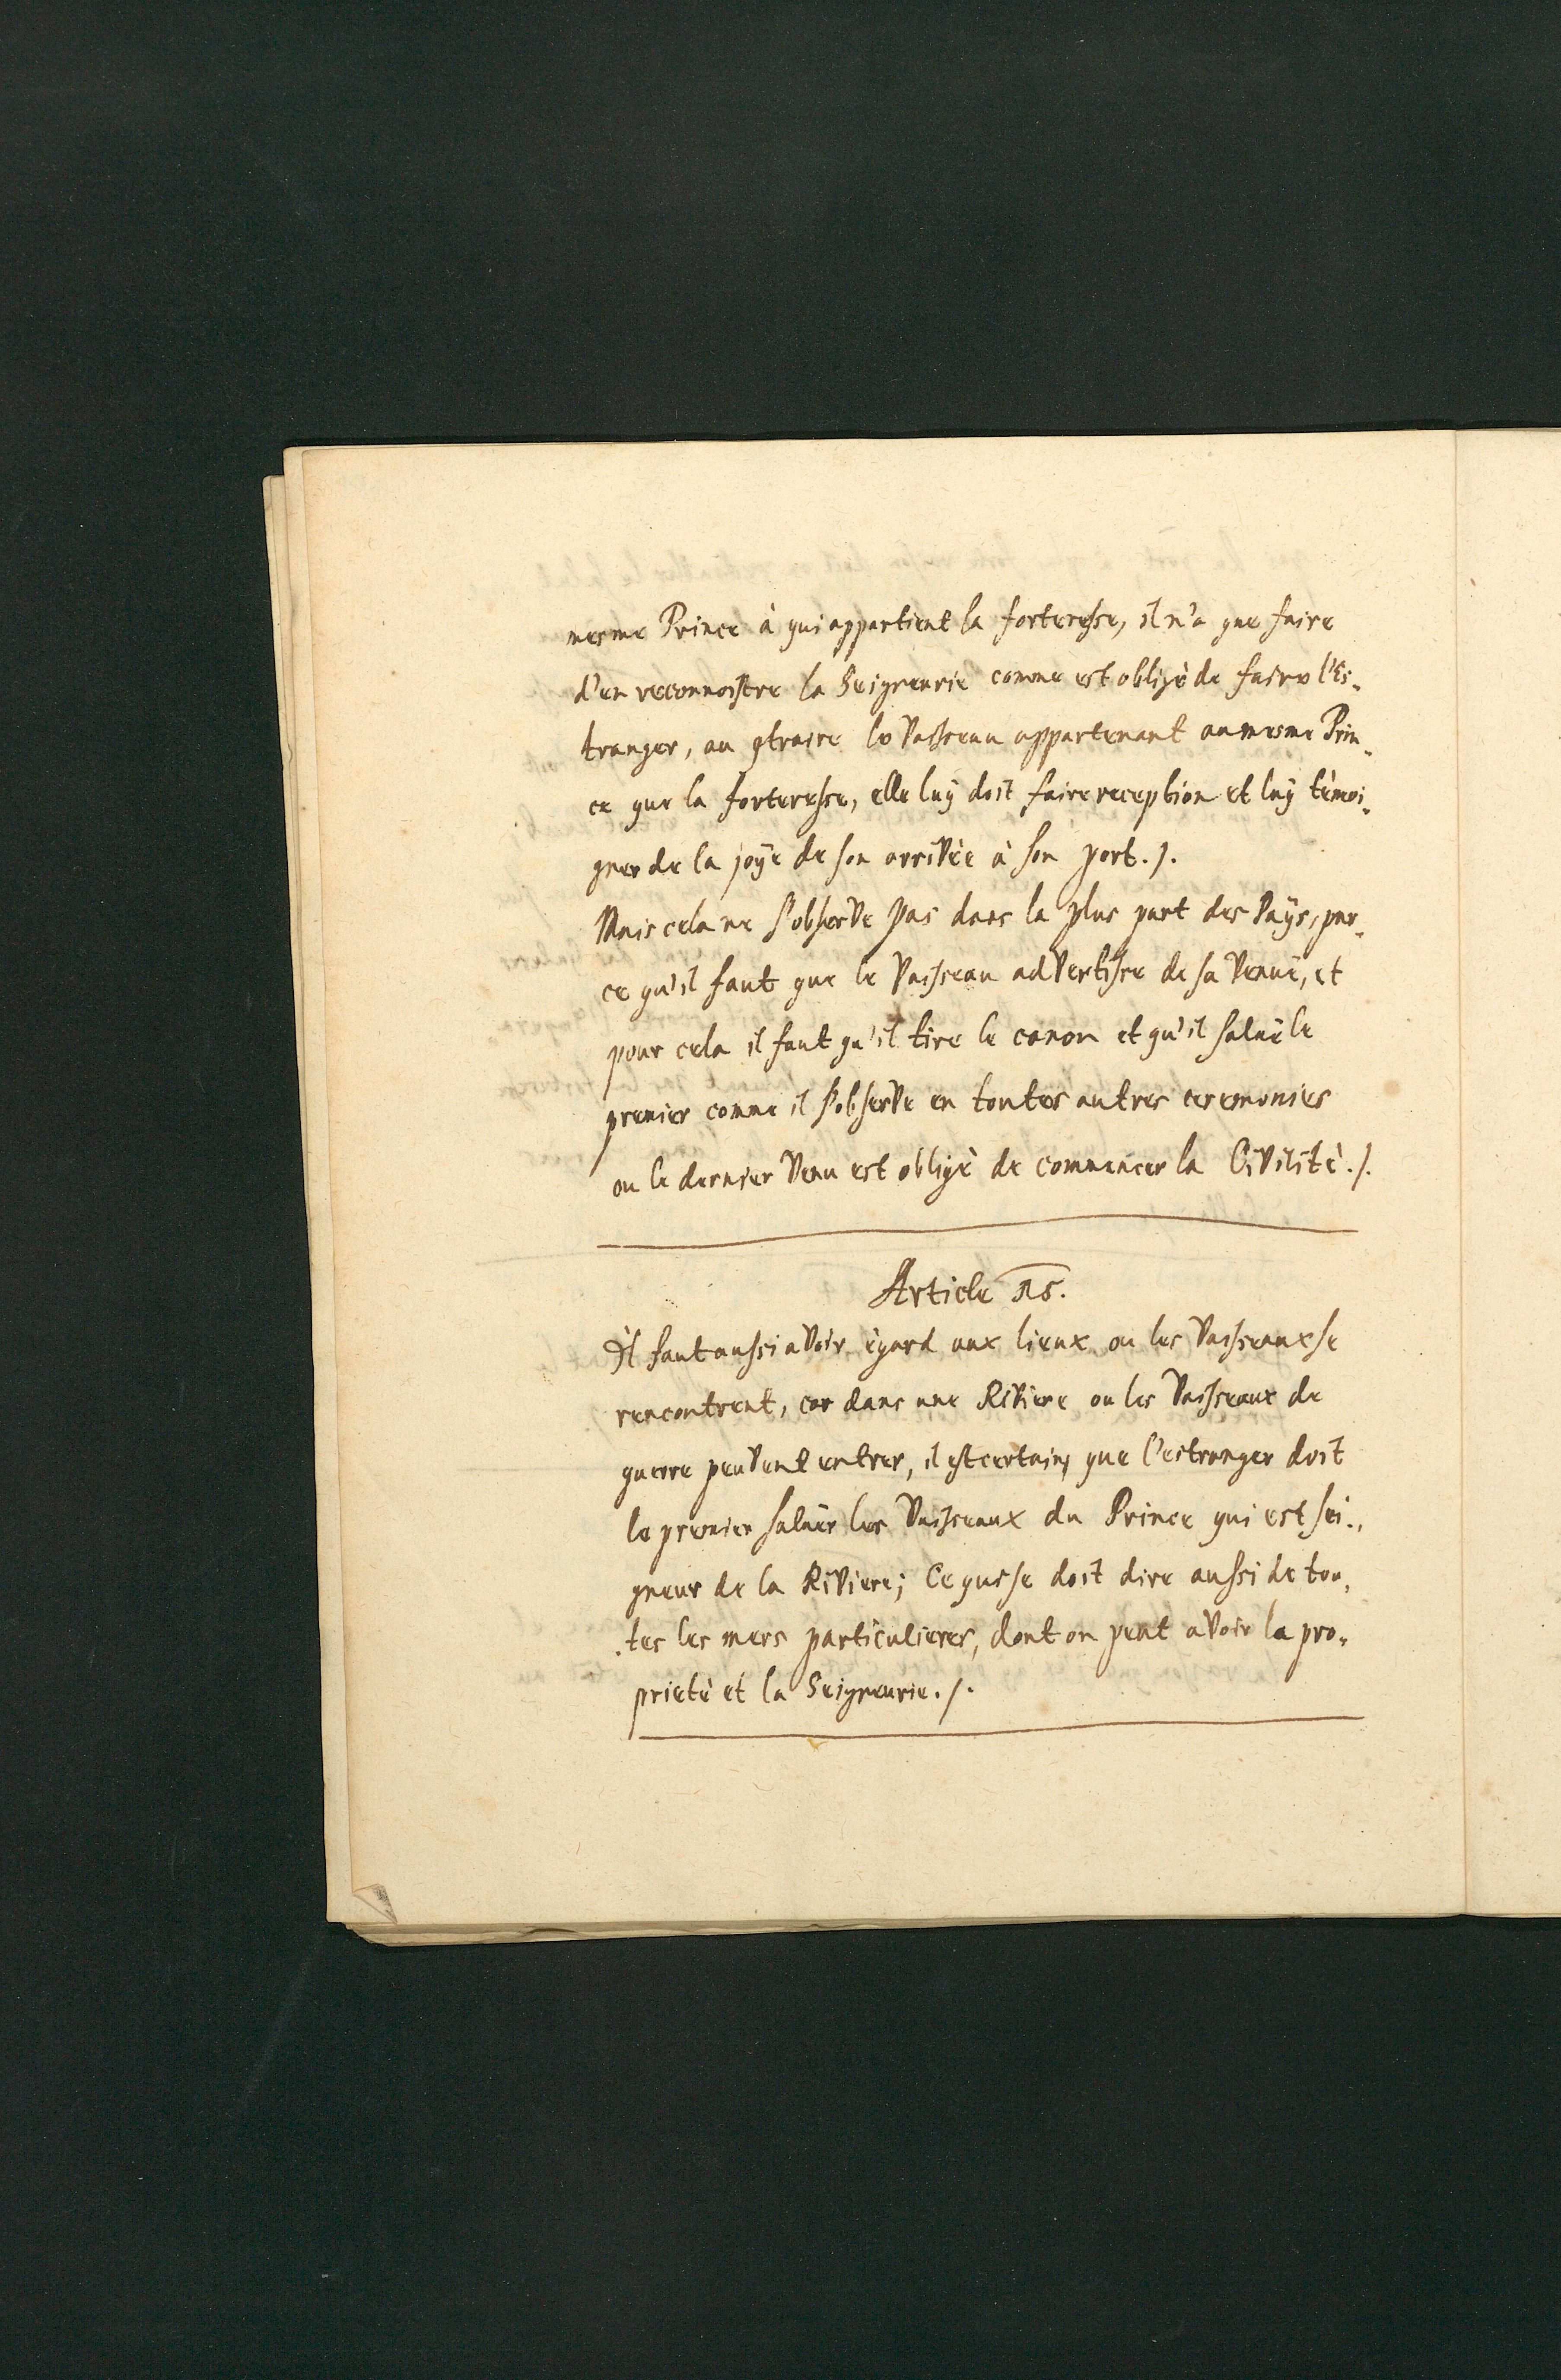 mesme Prince à qui appartient la forteresse, il n'a que faire
d'en reconnoistre la Seigneurie comme est obligè de faire l'Es-
tranger, au qtraire le Vaisseau appartenant au mesme Prin-
ce que la forteresse, elle luÿ doit faire reception et luÿ tèmoi-
gner de la joÿe de son arrivèe à son port./.
Mais cela ne s'observe pas dans la plus part des Paÿs, par-
ce qu'il faut que le Vaisseau advertisse de sa venuë, et
pour cela il faut qu'il tire le canon et qu'il saluë le
premier comme il s'observe en toutes autres ceremonies
ou le dernier venu est obligè de commencer la Civilitè./.
Article 15.
Il faut aussi avoir ègard aux lieux ou les Vaisseaux se
rencontrent, car dans une Riviere ou les Vaisseaux de
guerre peuvent entrer, il est certain que l'estranger doit
le premier saluër les Vaisseaux du Prince qui est sei-
gneur de la Riviere; Ce qui se doit dire aussi de tou-
tes les mers particulieres, dont on peut avoir la pro-
prietè et la Seigneurie./.